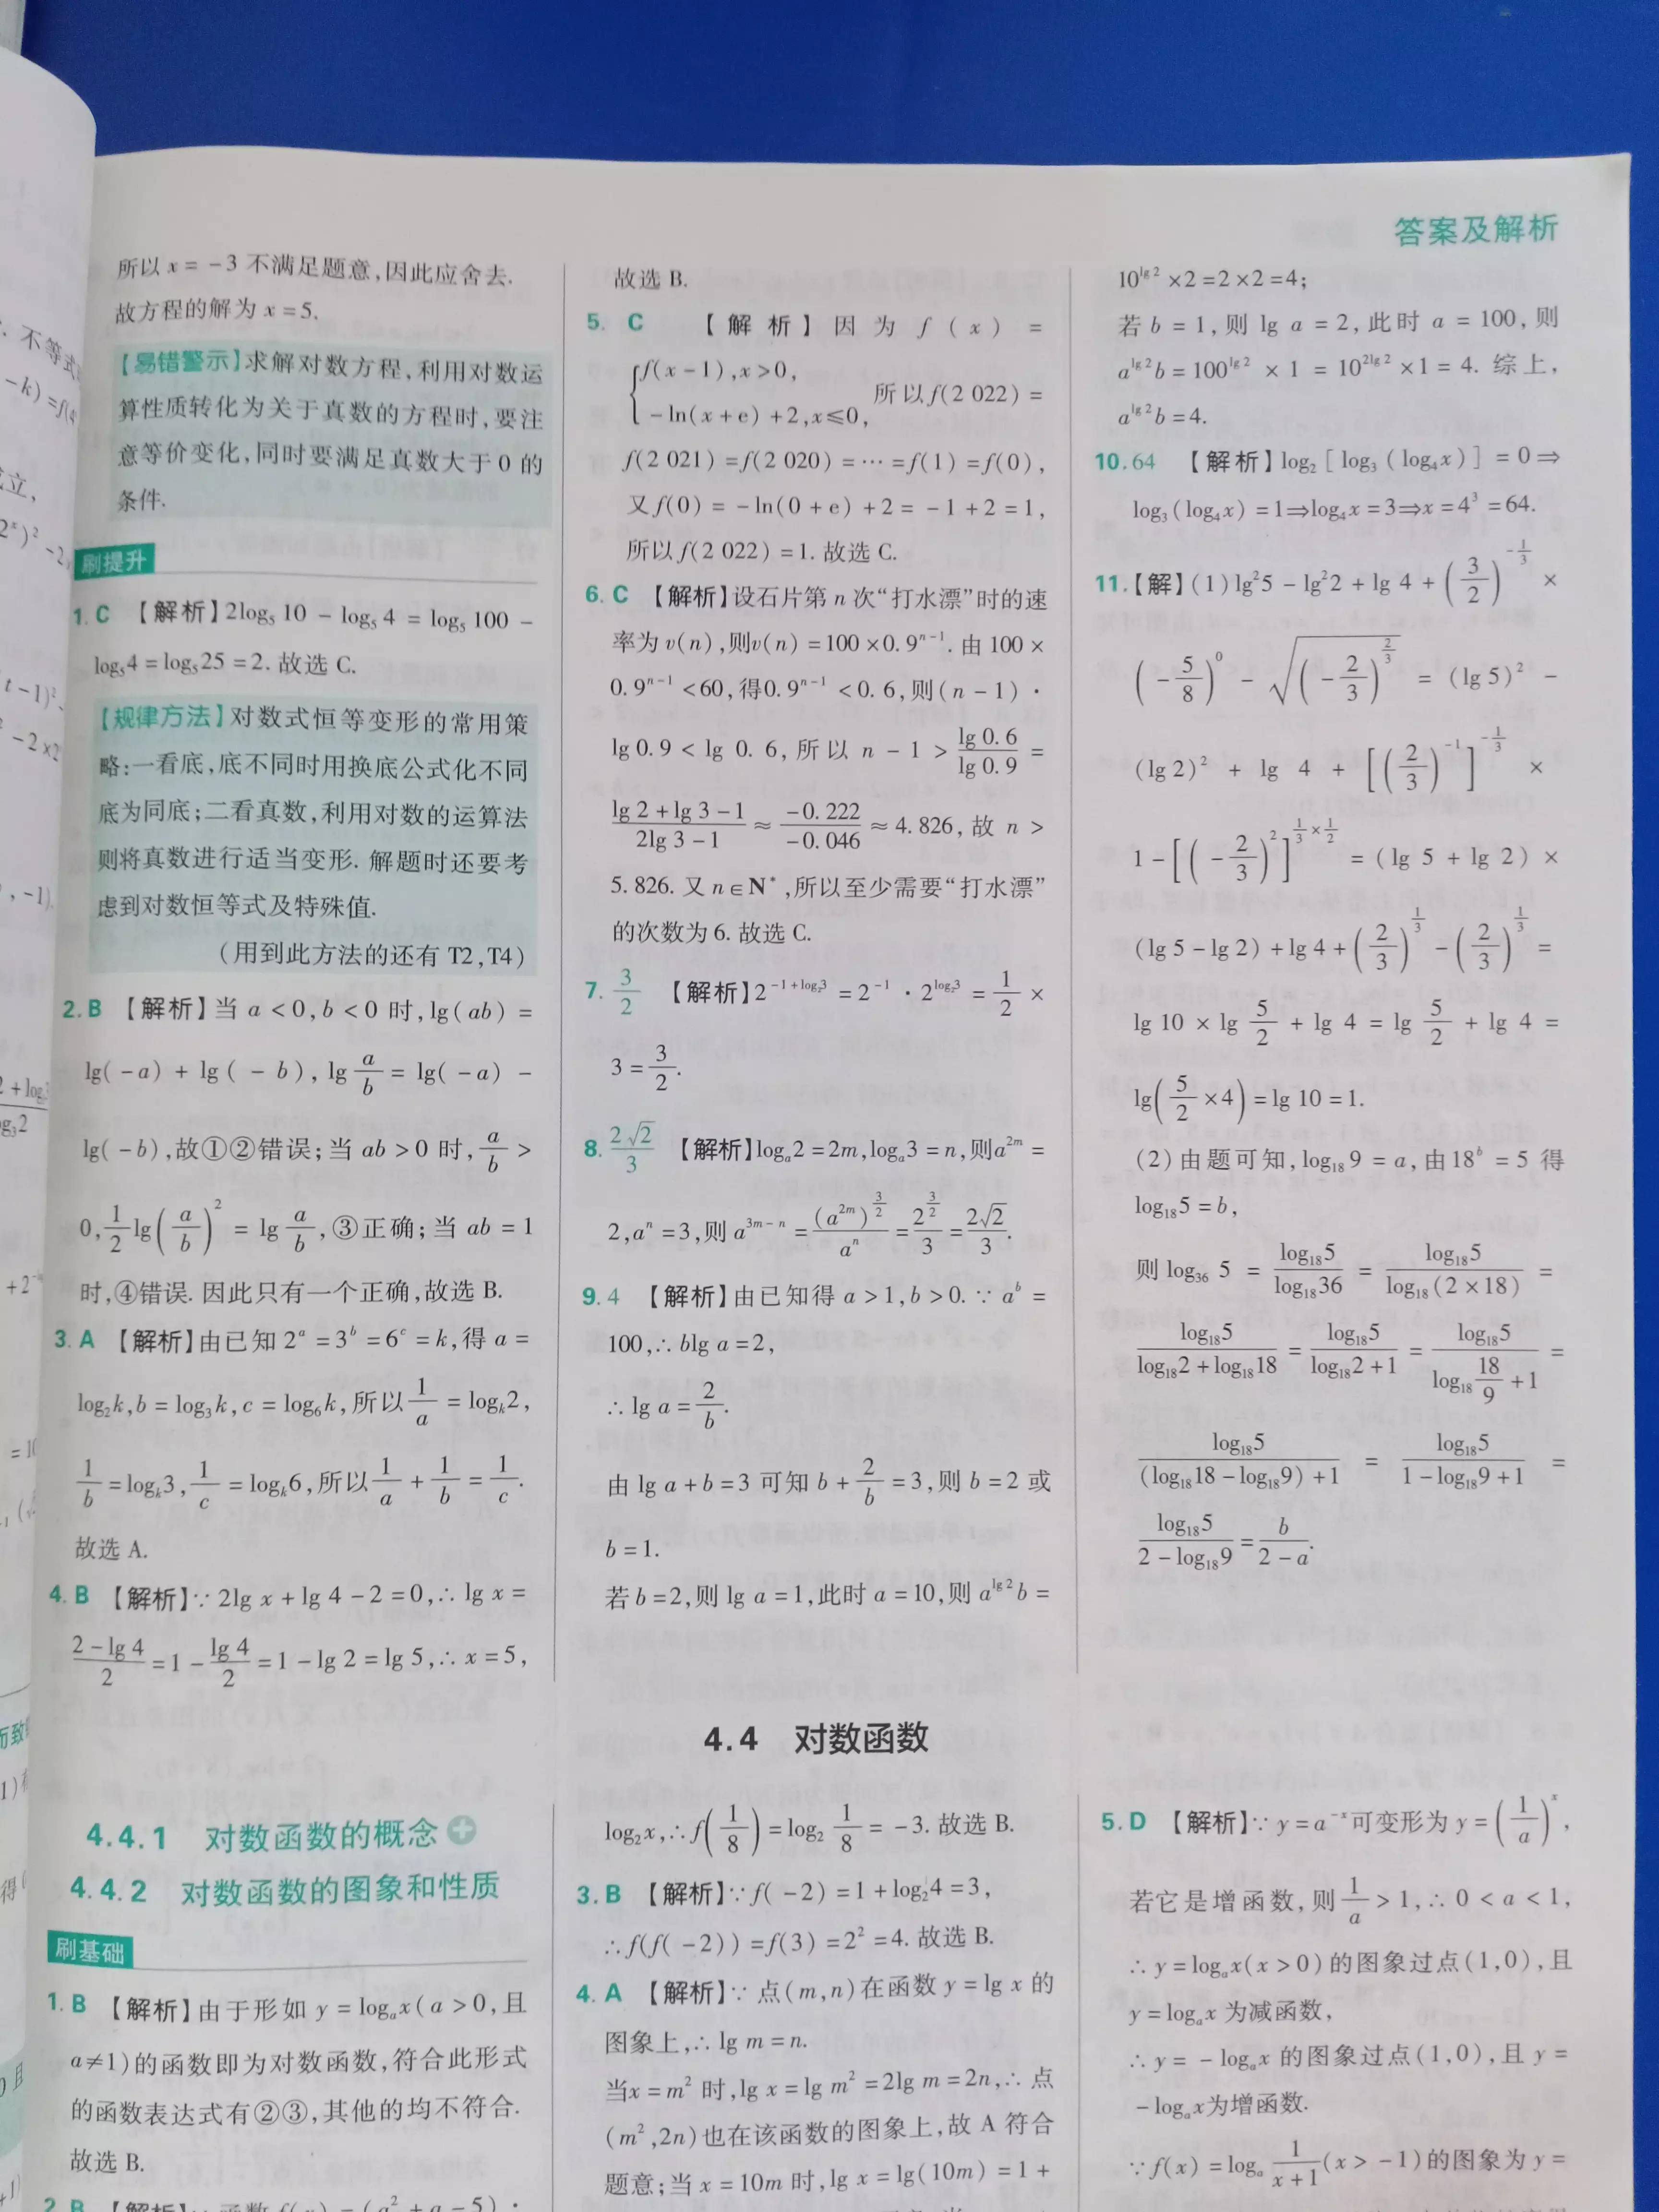 答案及解析
所以 x = -3 不满足题意,因此应舍去.
故方程的解为 x = 5.
【易错警示】求解对数方程,利用对数运
算性质转化为关于真数的方程时,要注
意等价变化,同时要满足真数大于 0 的
条件.
刷提升
1. C 【解析】2log₅ 10 - log₅ 4 = log₅ 100 -
log₅4 = log₅25 = 2. 故选 C.
【规律方法】对数式恒等变形的常用策
略:一看底,底不同时用换底公式化不同
底为同底;二看真数,利用对数的运算法
则将真数进行适当变形. 解题时还要考
虑到对数恒等式及特殊值.
(用到此方法的还有 T2,T4)
2. B 【解析】当 a < 0, b < 0 时, lg(ab) =
lg(-a) + lg(-b), lg a/b = lg(-a) -
lg(-b),故①②错误;当 ab > 0 时, a/b >
0, 1/2 lg(a/b)² = lg a/b, ③正确;当 ab = 1
时,④错误. 因此只有一个正确,故选 B.
3. A 【解析】由已知 2^a = 3^b = 6^c = k, 得 a =
log₂k, b = log₃k, c = log₆k, 所以 1/a = log_k 2,
1/b = log_k 3, 1/c = log_k 6, 所以 1/a + 1/b = 1/c.
故选 A.
4. B 【解析】∵ 2lg x + lg 4 - 2 = 0, ∴ lg x =
(2 - lg 4)/2 = 1 - (lg 4)/2 = 1 - lg 2 = lg 5, ∴ x = 5,
故选 B.
5. C 【解析】因为 f(x) =
{ f(x-1), x>0,
-ln(x+e)+2, x≤0, 所以 f(2 022) =
f(2 021) = f(2 020) = … = f(1) = f(0),
又 f(0) = -ln(0+e) + 2 = -1 + 2 = 1,
所以 f(2 022) = 1. 故选 C.
6. C 【解析】设石片第 n 次“打水漂”时的速
率为 v(n), 则v(n) = 100 × 0.9^(n-1). 由 100 ×
0.9^(n-1) < 60, 得0.9^(n-1) < 0.6, 则(n-1)·
lg 0.9 < lg 0.6, 所以 n - 1 > (lg 0.6)/(lg 0.9) =
(lg 2 + lg 3 - 1)/(2lg 3 - 1) ≈ (-0.222)/(-0.046) ≈ 4.826, 故 n >
5.826. 又 n∈N*, 所以至少需要“打水漂”
的次数为 6. 故选 C.
7. 3/2 【解析】2^(-1+log₂3) = 2^(-1) · 2^(log₂3) = 1/2 ×
3 = 3/2.
8. 2√2/3 【解析】log_a 2 = 2m, log_a 3 = n, 则a^(2m) =
2, a^n = 3, 则 a^(3m-n) = (a^(2m))^(3/2)/a^n = 2^(3/2)/3 = 2√2/3.
9. 4 【解析】由已知得 a > 1, b > 0. ∵ a^b =
100, ∴ blg a = 2,
∴ lg a = 2/b.
由 lg a + b = 3 可知 b + 2/b = 3, 则 b = 2 或
b = 1.
若 b = 2, 则 lg a = 1, 此时 a = 10, 则 a^(lg 2) b =
10^(lg 2) × 2 = 2 × 2 = 4;
若 b = 1, 则 lg a = 2, 此时 a = 100, 则
a^(lg 2) b = 100^(lg 2) × 1 = 10^(2lg 2) × 1 = 4. 综上,
a^(lg 2) b = 4.
10. 64 【解析】log₂[log₃(log₄x)] = 0⇒
log₃(log₄x) = 1⇒log₄x = 3⇒x = 4³ = 64.
11.【解】(1) lg²5 - lg²2 + lg 4 + (3/2)^(-1/3) ×
(-5/8)^0 - √((-2/3)^(2/3)) = (lg 5)² -
(lg 2)² + lg 4 + [(2/3)^(-1)]^(-1/3) ×
1 - [(-2/3)²]^(1/3×1/2) = (lg 5 + lg 2) ×
(lg 5 - lg 2) + lg 4 + (2/3)^(1/3) - (2/3)^(1/3) =
lg 10 × lg 5/2 + lg 4 = lg 5/2 + lg 4 =
lg(5/2 × 4) = lg 10 = 1.
(2) 由题可知, log₁₈ 9 = a, 由18^b = 5 得
log₁₈5 = b,
则 log₃₆ 5 = log₁₈5/log₁₈36 = log₁₈5/log₁₈(2×18) =
log₁₈5/(log₁₈2 + log₁₈18) = log₁₈5/(log₁₈2 + 1) = log₁₈5/(log₁₈ 18/9 + 1) =
log₁₈5/((log₁₈18 - log₁₈9) + 1) = log₁₈5/(1 - log₁₈9 + 1) =
log₁₈5/(2 - log₁₈9) = b/(2 - a).
4.4 对数函数
4.4.1 对数函数的概念
4.4.2 对数函数的图象和性质
刷基础
1. B 【解析】由于形如 y = log_a x(a > 0, 且
a≠1)的函数即为对数函数,符合此形式
的函数表达式有②③,其他的均不符合.
故选 B.
2. B 【解析】∵ 函数 f(x) = (a² + a - 5)·
log₂x, ∴ f(1/8) = log₂ 1/8 = -3. 故选 B.
3. B 【解析】∵ f(-2) = 1 + log₂4 = 3,
∴ f(f(-2)) = f(3) = 2² = 4. 故选 B.
4. A 【解析】∵ 点(m,n)在函数 y = lg x 的
图象上, ∴ lg m = n.
当x = m² 时, lg x = lg m² = 2lg m = 2n, ∴ 点
(m²,2n)也在该函数的图象上,故 A 符合
题意;当 x = 10m 时, lg x = lg(10m) = 1 +
5. D 【解析】∵ y = a^(-x)可变形为 y = (1/a)^x,
若它是增函数, 则 1/a > 1, ∴ 0 < a < 1,
∴ y = log_a x(x > 0)的图象过点(1,0), 且
y = log_a x 为减函数,
∴ y = -log_a x 的图象过点(1,0), 且 y =
-log_a x为增函数.
∵ f(x) = log_a 1/(x+1) (x > -1)的图象为 y =